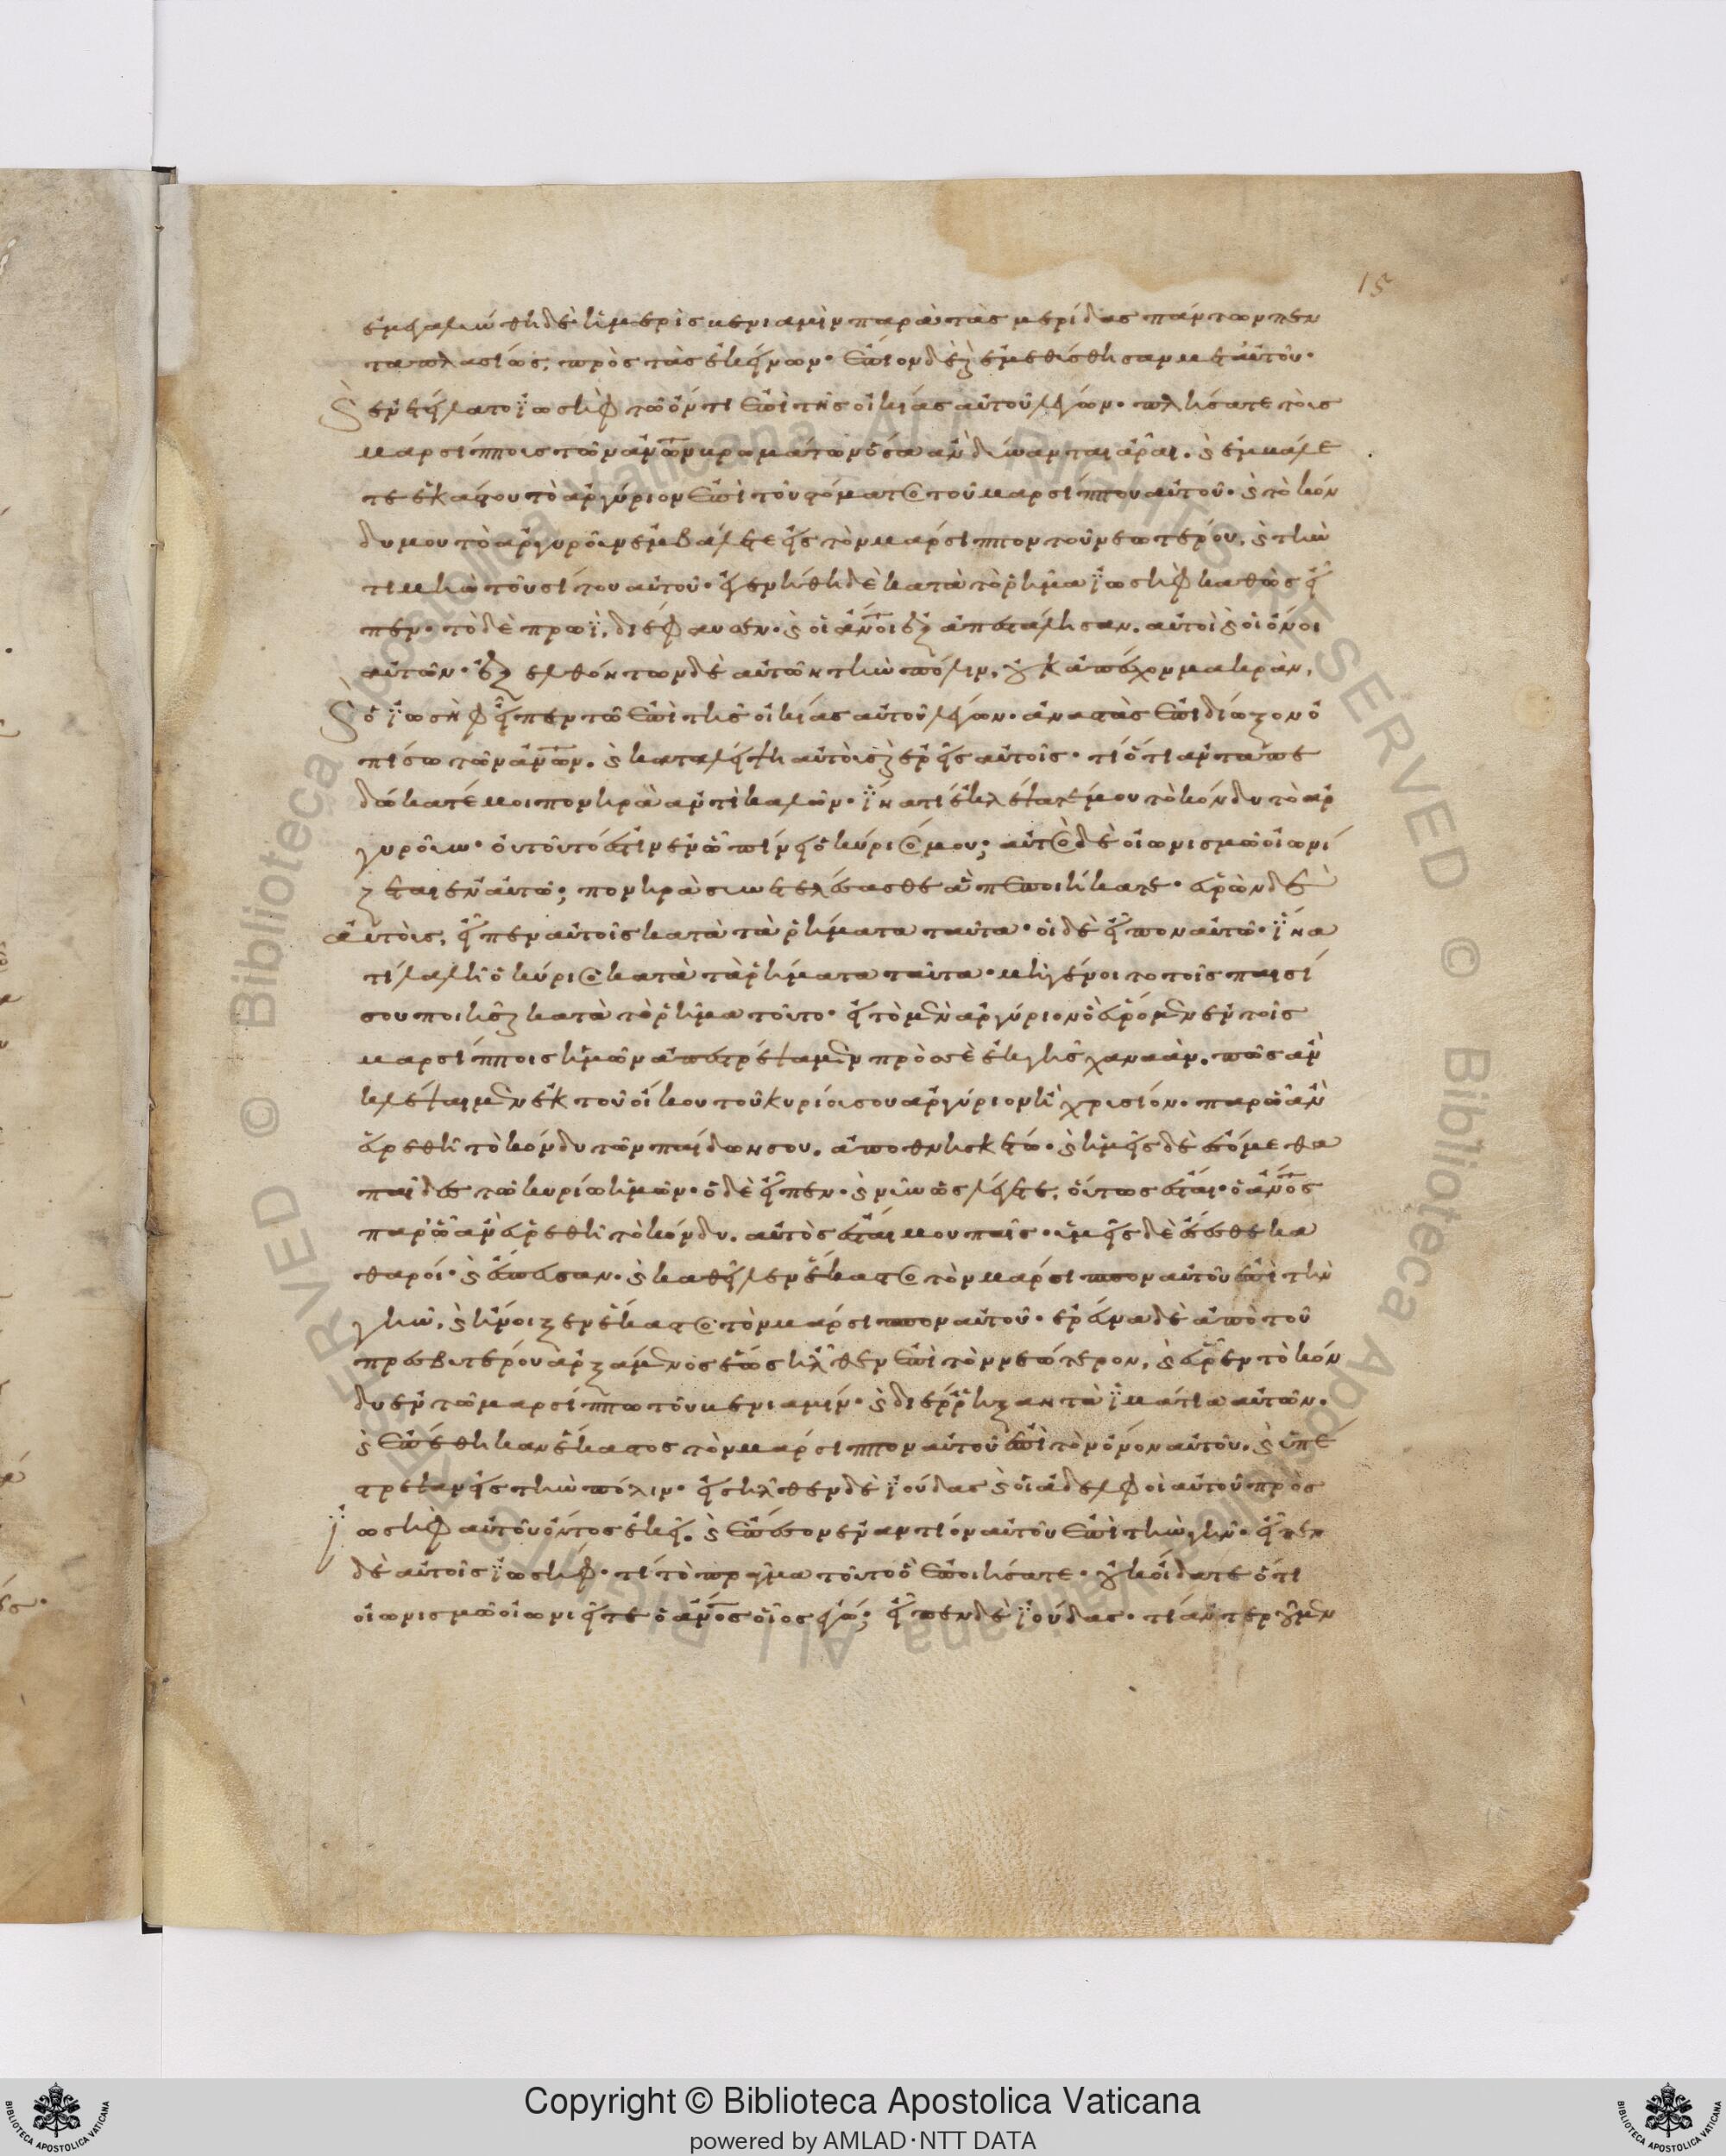 15
ἐμεγαλύνθη δὲ ἡ μερὶς βενιαμὶν παρὰ τὰς μερίδας πάντων πεν
ταπλασίως, πρὸς τὰς ἐκείνων· ἔπιον δὲ καὶ ἐμεθύσθησαν μετ αὐτοῦ·
καὶ ἐνετείλατο ἰωσὴφ τῶ ὄντι ἐπὶ τῆς οἰκίας αὐτοῦ λέγων· πλήσατε τοὺς
μαρσίππους τῶν ἀνων βρωμάτων ὅσα ἂν δύωνται ἆραι. καὶ ἐμβάλε
τε ἑκάστου τὸ ἀργύριον ἐπὶ τοῦ στόματος τοῦ μαρσίππου αὐτοῦ· καὶ τὸ κόν
δυ μου τὸ ἀργυροῦν ἐμβάλετε εἰς τὸν μάρσιππον τοῦ νεωτέρου, καὶ τὴν
τιμὴν τοῦ σίτου αὐτοῦ· ἐγενήθη δὲ κατὰ τὸ ῥῆμα ἰωσὴφ καθὼς εἶ
πεν· τὸ δὲ πρωῒ, διέφαυσεν· καὶ οἱ ἀνοι ἐξαπεστάλησαν. αὐτοὶ καὶ οἱ ὄνοι
αὐτῶν· ἐξελθόντων δὲ αὐτῶν τὴν πόλιν, οὐκ ἀπέσχον μακράν,
καὶ ὁ ἰωσὴφ εἶπεν τῶ ἐπὶ τῆς οἰκίας αὐτοῦ λέγων· ἀναστὰς ἐπιδίωξον ὀ
πίσω τῶν ἀνων. καὶ καταλήψη αὐτοὺς καὶ ἐρεῖς αὐτοῖς· τί ὅτι ἀνταπε
δώκατέ μοι πονηρὰ ἀντὶ καλῶν· ἵνα τί ἐκλέψατέ μου τὸ κόνδυ τὸ ἀρ
γυροῦν· οὐ τοῦτό ἐστιν ἐν ὧ πίνει ὁ κύριός μου; αὐτὸς δὲ οἰωνισμῶ οἰωνί
ζεται ἐν αὐτῶ; πονηρὰ συντελέσασθε ἃ πεποιήκατε· εὑρὼν δὲ
αὐτοὺς, εἶπεν αὐτοῖς κατὰ τὰ ῥήματα ταῦτα· οἱ δὲ εἶπον αὐτῶ· ἵνα
τί λαλῆ ὁ κύριος κατὰ τὰ ῥήματα ταῦτα· μὴ γένοιτο τοῖς παισί
σου ποιῆσαι κατὰ τὸ ῥῆμα τοῦτο· εἰ τὸ μὲν ἀργύριον ὃ εὕρομεν ἐν τοῖς
μαρσίπποις ἡμῶν ἀπεστρέψαμεν πρὸς σὲ ἐκ γῆς χαναάν. πῶς ἂν
κλέψαιμεν ἐκ τοῦ οἴκου τοῦ κυρίου σου ἀργύριον ἢ χρυσίον· παρ ὧ ἂν
εὑρεθῆ τὸ κόνδυ τῶν παίδων σου. ἀποθνησκέτω· καὶ ἡμεῖς δὲ ἐσόμεθα
παῖδες τῶ κυρίω ἡμῶν· ὁ δὲ εἶπεν· καὶ νῦν ὡς λέγετε, οὕτως ἔσται· ὁ ἀνος
παρ ὧ ἂν εὑρεθῆ τὸ κόνδυ. αὐτὸς ἔσται μου παῖς· ὑμεῖς δὲ ἔσεσθε κα
θαροί· καὶ ἔσπευσαν. καὶ καθεῖλεν ἕκαστος τὸν μάρσιππον αὐτοῦ ἐπὶ τὴν
γῆν, καὶ ἤνοιξεν ἕκαστος τὸν μάρσιππον αὐτοῦ· ἐρεύνα δὲ ἀπὸ τοῦ
πρεσβυτέρου ἀρξάμενος ἕως ἦλθεν ἐπὶ τὸν νεώτερον, καὶ εὗρεν τὸ κόν
δυ ἐν τῶ μαρσίππω τοῦ βενιαμίν· καὶ διέρρηξαν τὰ ἱμάτια αὐτῶν.
καὶ ἐπέθηκαν ἕκαστος τὸν μάρσιππον αὐτοῦ ἐπὶ τὸν ὄνον αὐτοῦ. καὶ ὑπέ
στρεψαν εἰς τὴν πόλιν· εἰσῆλθεν δὲ ἰούδας καὶ οἱ ἀδελφοὶ αὐτοῦ πρὸς
ἰωσὴφ αὐτοῦ ὄντος ἐκεῖ. καὶ ἔπεσον ἐναντίον αὐτοῦ ἐπὶ τὴν γῆν· εἶπεν
δὲ αὐτοῖς ἰωσήφ· τί τὸ πρᾶγμα τοῦτο ὃ ἐποιήσατε· οὐκ οἴδατε ὅτι
οἰωνισμῶ οἰωνιεῖτε ὁ ἀνος οἷος ἐγώ; εἶπεν δὲ ἰούδας· τί ἀντεροῦμεν
Copyright © Biblioteca Apostolica Vaticana
powered by AMLAD·NTT DATA